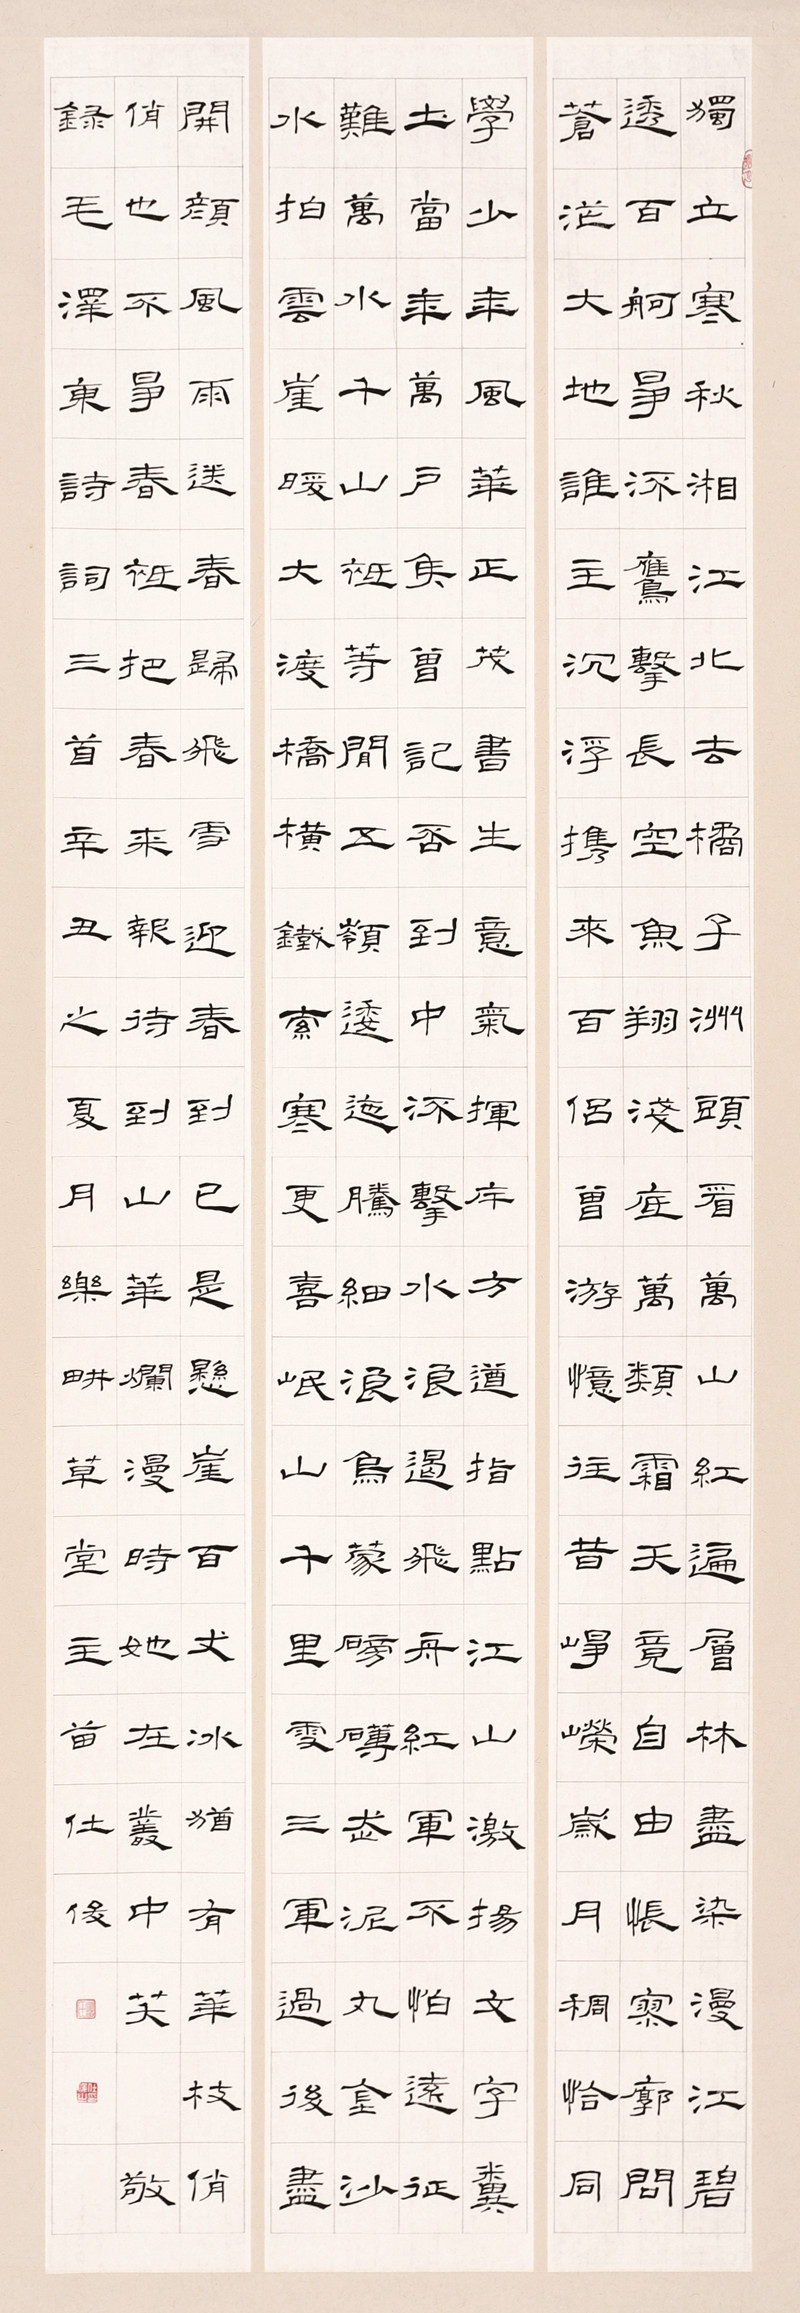 獨立寒秋湘江北去橘子洲頭看萬山紅遍層林盡染漫江碧
透百舸爭流鷹擊長空魚翔淺底萬類霜天竟自由悵寥廓問
蒼茫大地誰主沉浮携來百侶曾游憶往昔崢嶸歲月稠恰同
學少年風華正茂書生意氣揮斥方遒指點江山激揚文字糞
土當年萬戶侯曾記否到中流擊水浪遏飛舟紅軍不怕遠征
難萬水千山祇等閒五嶺逶迤騰細浪烏蒙磅礴走泥丸金沙
水拍雲崖暖大渡橋橫鐵索寒更喜岷山千里雪三軍過後盡
開顏風雨送春歸飛雪迎春到已是懸崖百丈冰猶有華枝俏
俏也不爭春祇把春來報待到山華爛漫時她在叢中笑 敬
録毛澤東詩詞三首辛丑之夏月樂畊草堂主苗仕俊